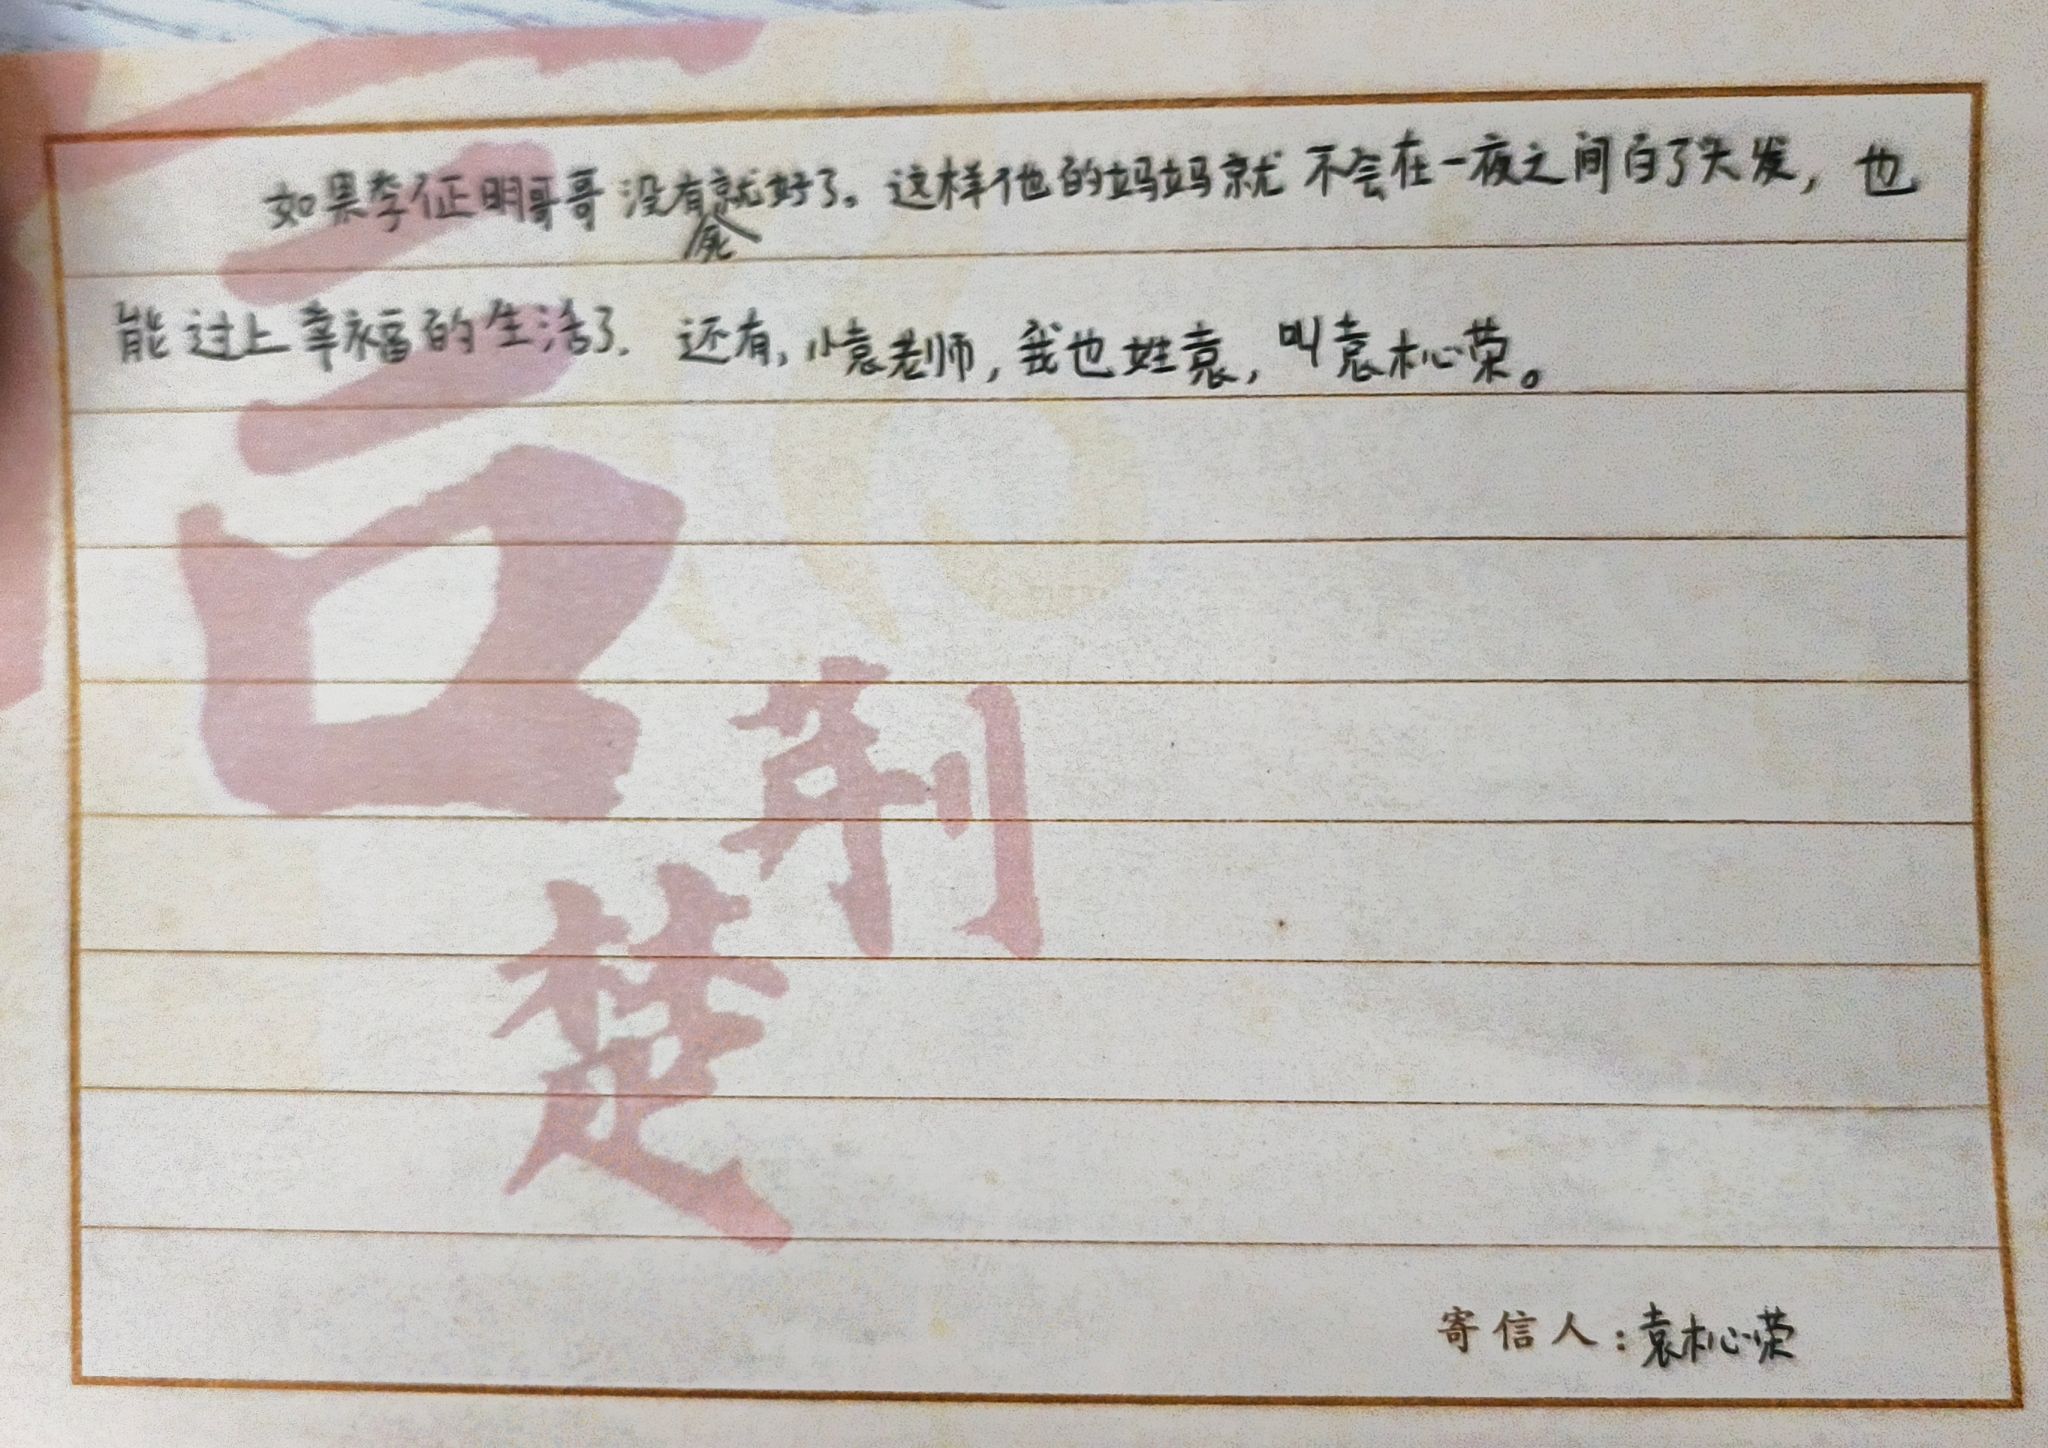 如果李征明哥哥没有死就好了。这样他的妈妈就不会在一夜之间白了头发，也
能过上幸福的生活了。还有，小袁老师，我也姓袁，叫袁杺荣。
言
荆
楚
寄信人：袁杺荣